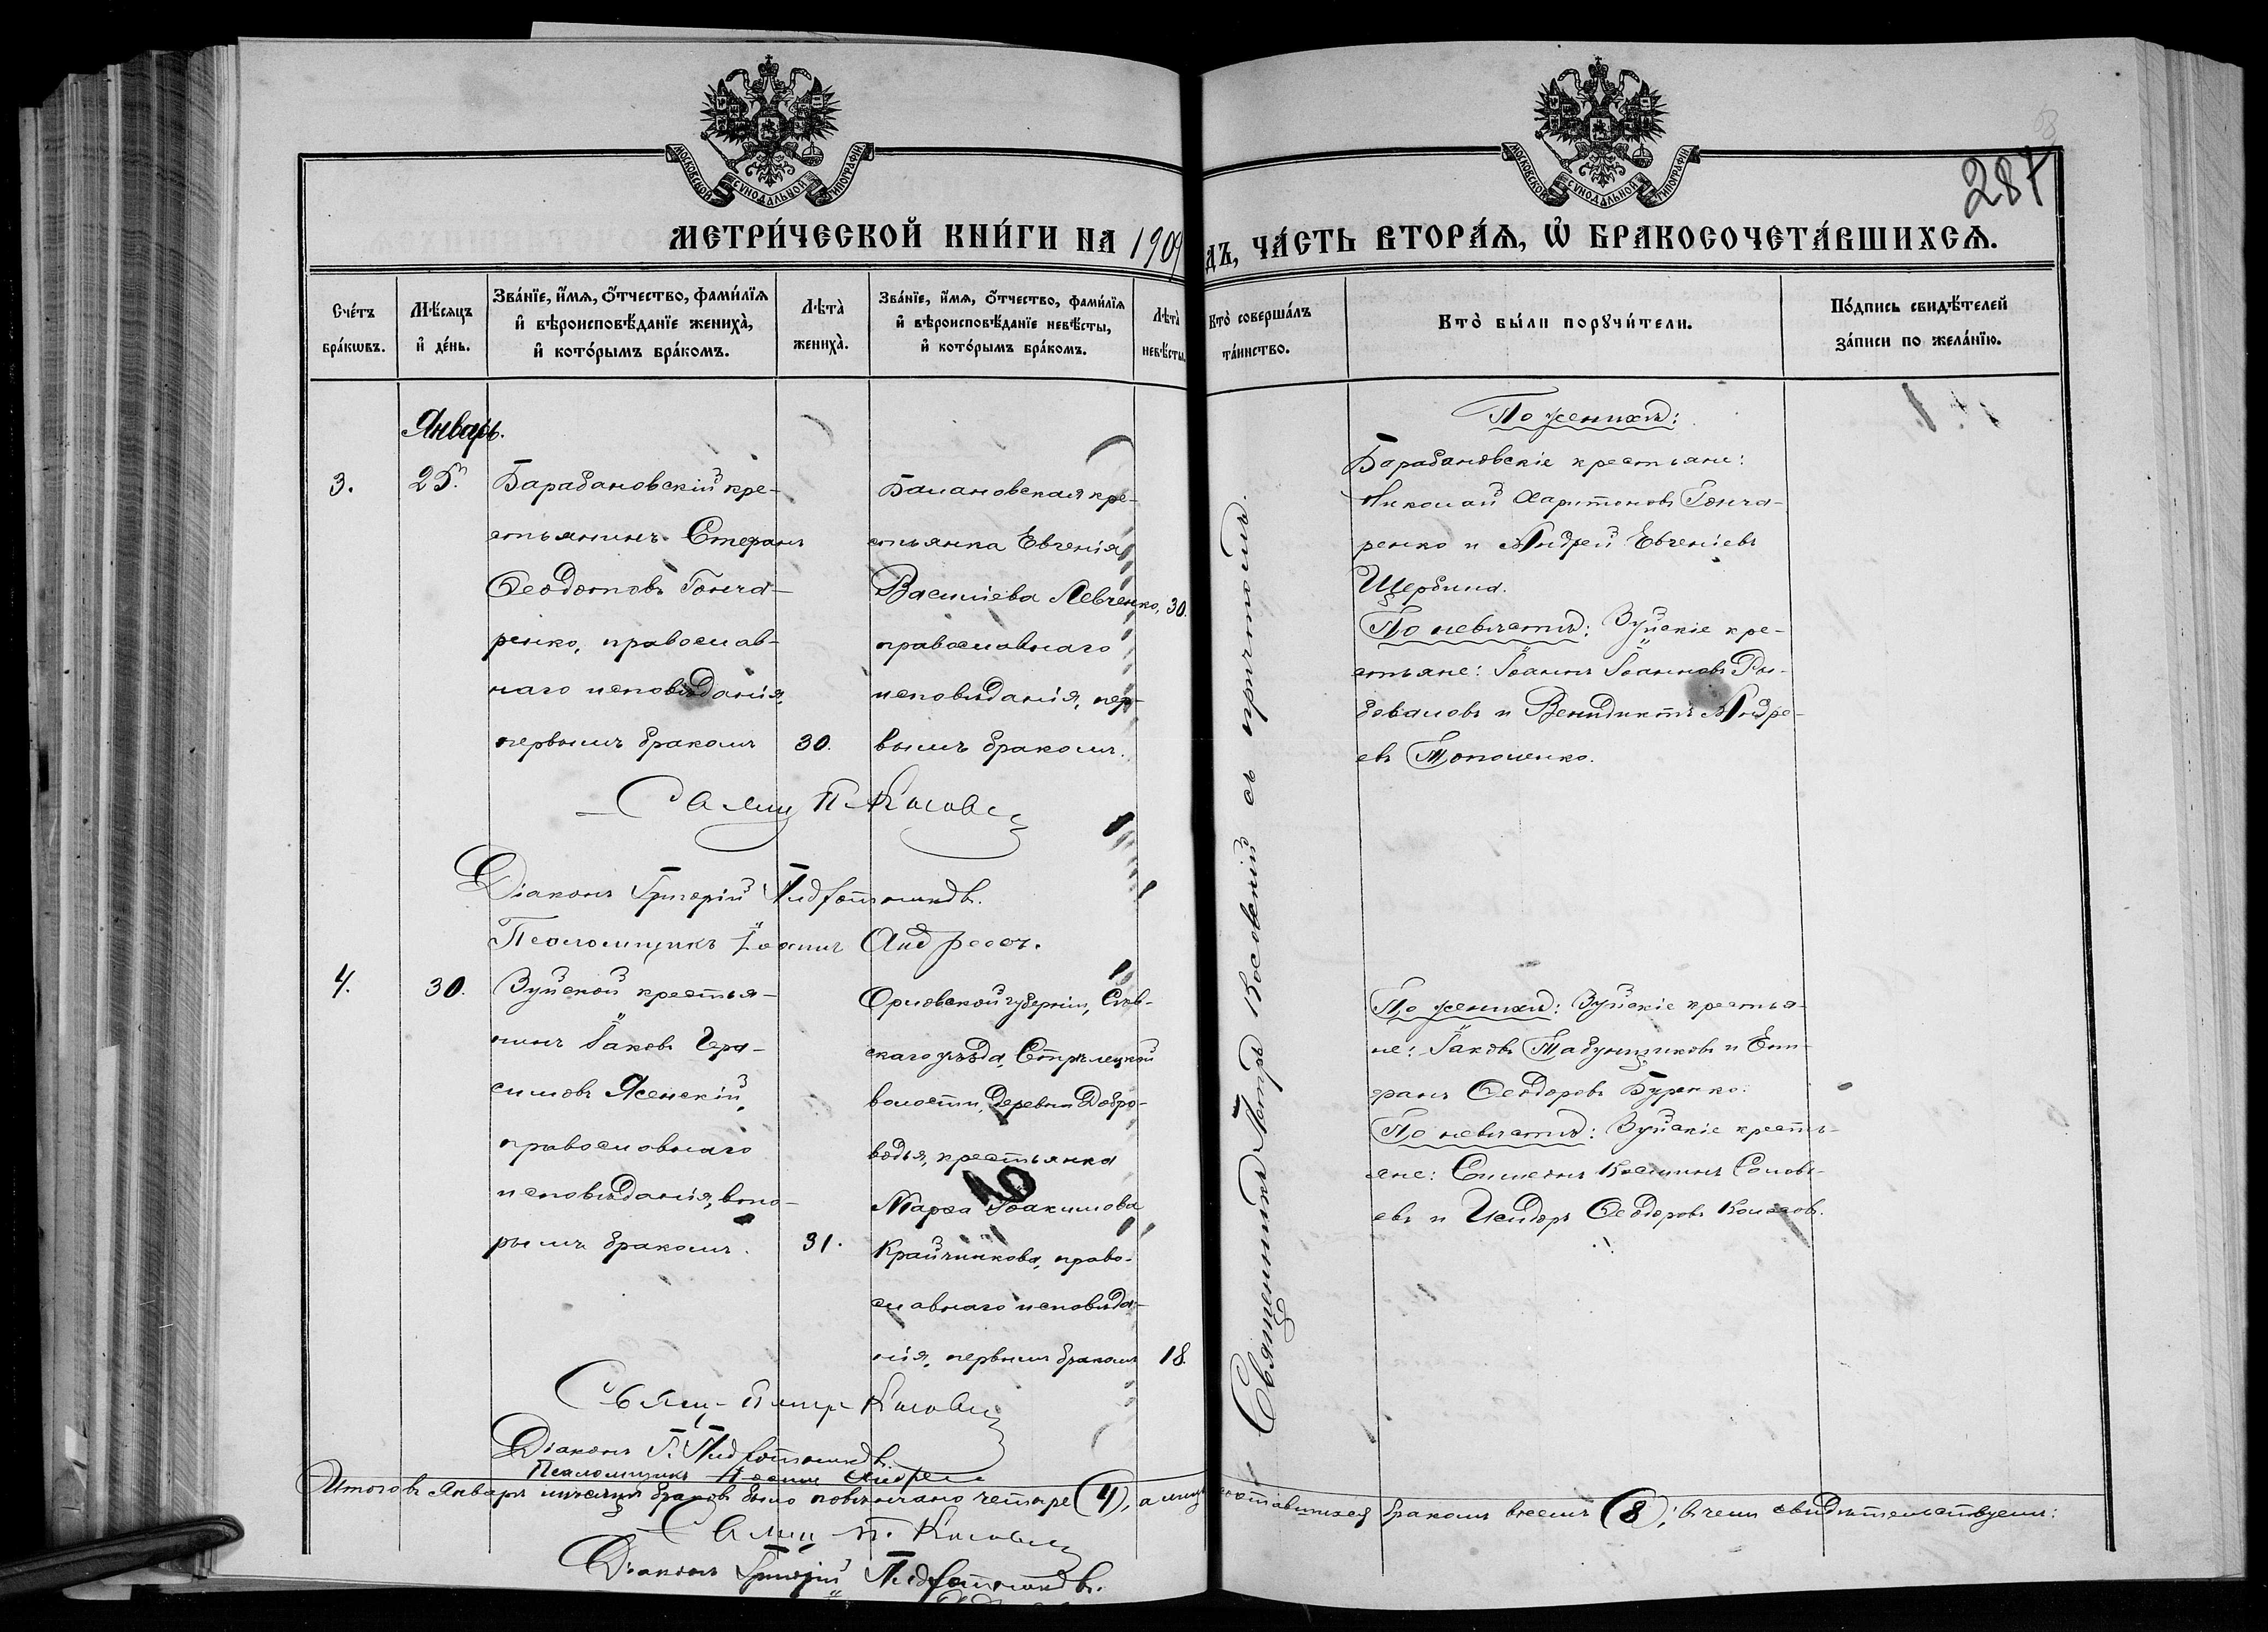 МОСКОВСКОЙ СѴНОДАЛЬНОЙ ТИПОГРАФІИ
МОСКОВСКОЙ СѴНОДАЛЬНОЙ ТИПОГРАФІИ
287
МЕТРИ́ЧЕСКОЙ КНИ́ГИ НА 1909
ДЪ, ЧА́СТЬ ВТОРА́Ѧ, Ѡ҆ БРАКОСОЧЕТА́ВШИХСѦ.
Сче́тъ бра́кѡвъ.
Мѣ́сяцъ и҆ де́нь.
Зва́нїе, и҆́мѧ, ѻ҆́тчество, фами́лїѧ и҆ вѣроисповѣ́данїе жениха̀, и҆ кото́рымъ бра́комъ.
Лѣта̀ жениха̀.
Зва́нїе, и҆́мѧ, ѻ҆́тчество, фами́лїѧ и҆ вѣроисповѣ́данїе невѣ́сты, и҆ кото́рымъ бра́комъ.
Лѣта̀ невѣ́сты.
Кто̀ соверша́лъ та́инство.
Кто̀ бы́ли порꙋчи́тели.
По́дпись свидѣ́телей за́писи по жела́нїю.
Январь.
3.
25.
Барабановскій кре-
стьянинъ Стефанъ
Ѳеодотовъ Гонча-
ренко, православ-
наго исповѣданія,
первымъ бракомъ
30.
Балановская кре-
стьянка Евгенія
Василіева Левченко,
православнаго
исповѣданія, пер-
вымъ бракомъ.
30.
Священникъ Петръ Косовскій съ причтомъ.
По женихѣ:
Барабановскіе крестьяне:
Николай Харитоновъ Гонча-
ренко и Андрей Евгеніевъ
Щербина.
По невѣстѣ: Зуйскіе кре-
стьяне: Іоаннъ Іоанновъ Ры-
боваловъ и Венидиктъ Андре-
евъ
Діаконъ Григорій
Псаломщикъ Іоаннъ
4.
30.
Зуйской крестья-
нинъ Іаковъ Гера-
симовъ Ясенскій,
православнаго
исповѣданія, вто-
рымъ бракомъ.
31.
Орловской губерніи, Сѣв-
скаго уѣзда, Стрѣлецкой
волости, деревни Добро-
водья, крестьянка
Марѳа Іоакимова
Крайчинкова, право-
славнаго исповѣда-
нія, первымъ бракомъ
18.
По женихѣ: Зуйскіе крестья-
не: Іаковъ Табунщиковъ и Сте-
фанъ Ѳеодоровъ Буренко.
По невѣстѣ: Зуйскіе кресть-
яне: Симеонъ Косминъ Соловь-
евъ и Исидоръ Ѳеодоровъ
Свящ. Петръ
Діаконъ Г.
Псаломщикъ
Итого въ Январѣ мѣсяцѣ браковъ было повѣнчано четыре (4), а лицъ сочетавшихся бракомъ восемь (8); въ чемъ свидѣтельствуемъ:
Діаконъ Григорій